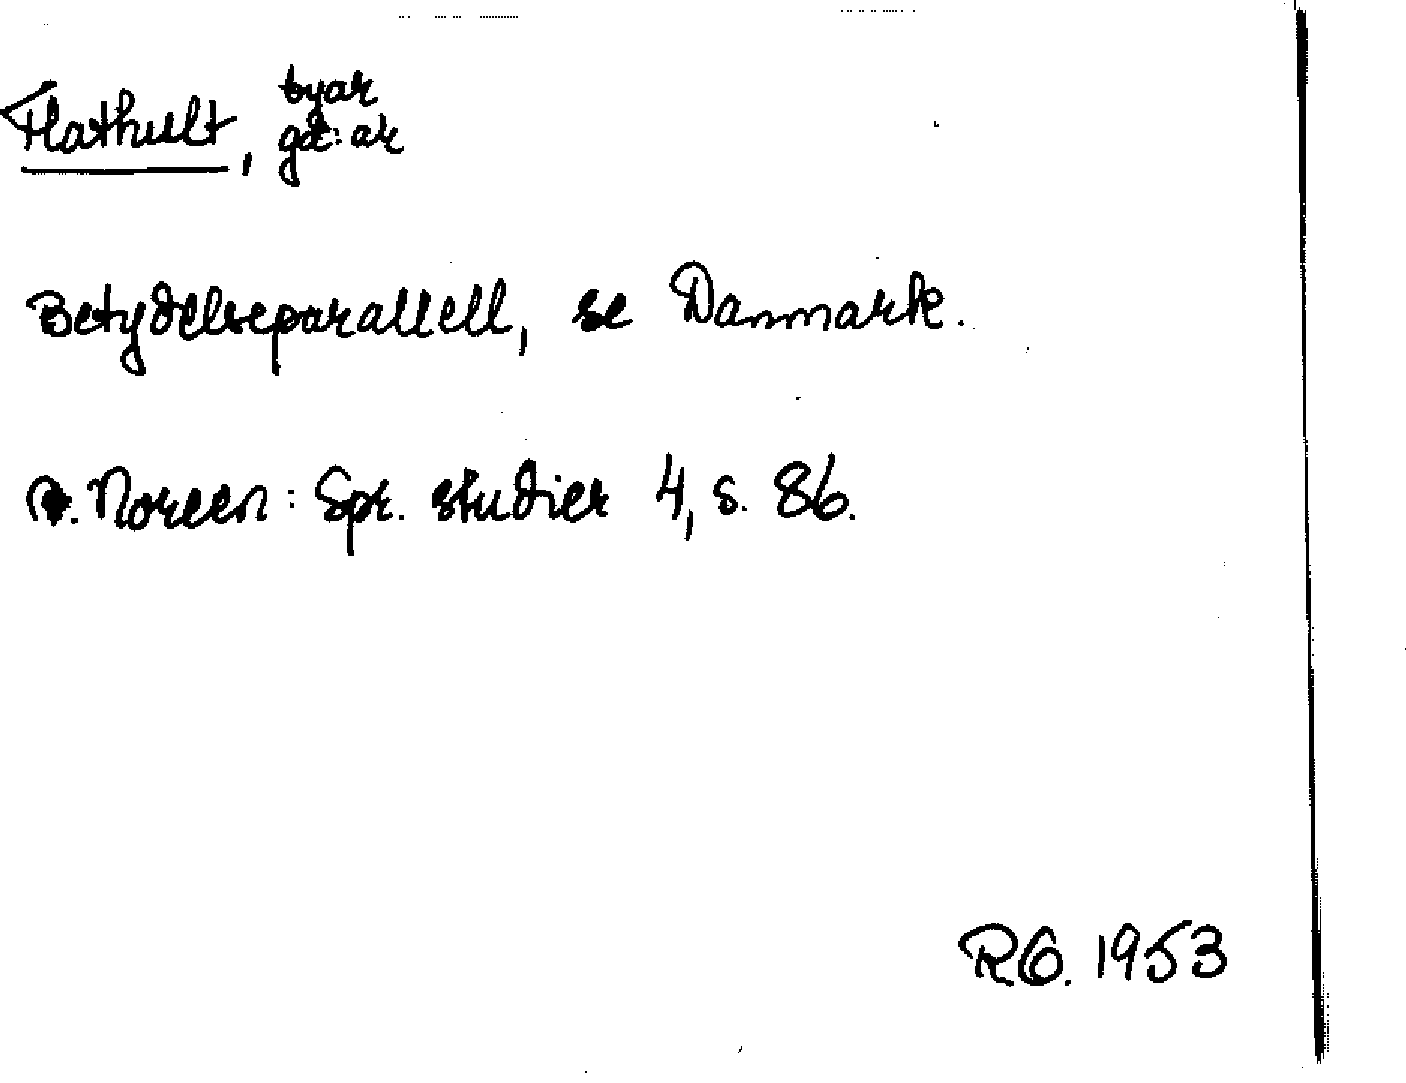 Flathult, byar
gd:ar
Betydelseparallell, se Danmark.
A. Noreen: Spr. studier 4, s. 86.
RO. 1953